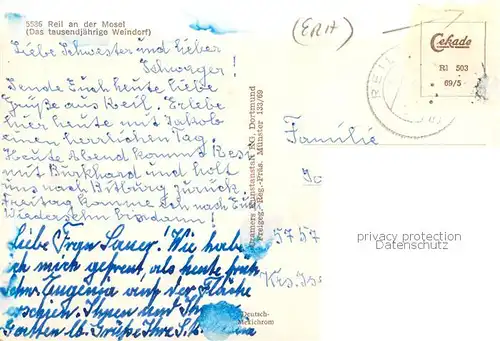 5586 Reil an der Mosel
(Das tausendjährige Weindorf)
(ERH)
Cekade
RI 503
69/5
REIL
Liebe Schwester und lieber
Schwager!
Sende Euch heute liebe
Grüße aus Reil. Erlebe
hier heute mit Jakob
einen herrlichen Tag.
Heute Abend kommt Resi
mit Burkhard und holt
uns nach Bitburg zurück.
Freitag komme ich nach Euch
Wiedersehn
Cramers Kunstanstalt KG, Dortmund
Freigeg. Reg.-Präs. Münster 133/69
Familie
5757
Krs.
privacy protection
Datenschutz
Liebe Frau Sauer! Wie habe
ich mich gefreut, als heute früh
Schw. Eugenia auf der Fläche
erschien. Ihnen und Ihrem
Gatten lb. Grüße Ihre S. M.
Deutsch-
Mexichrom